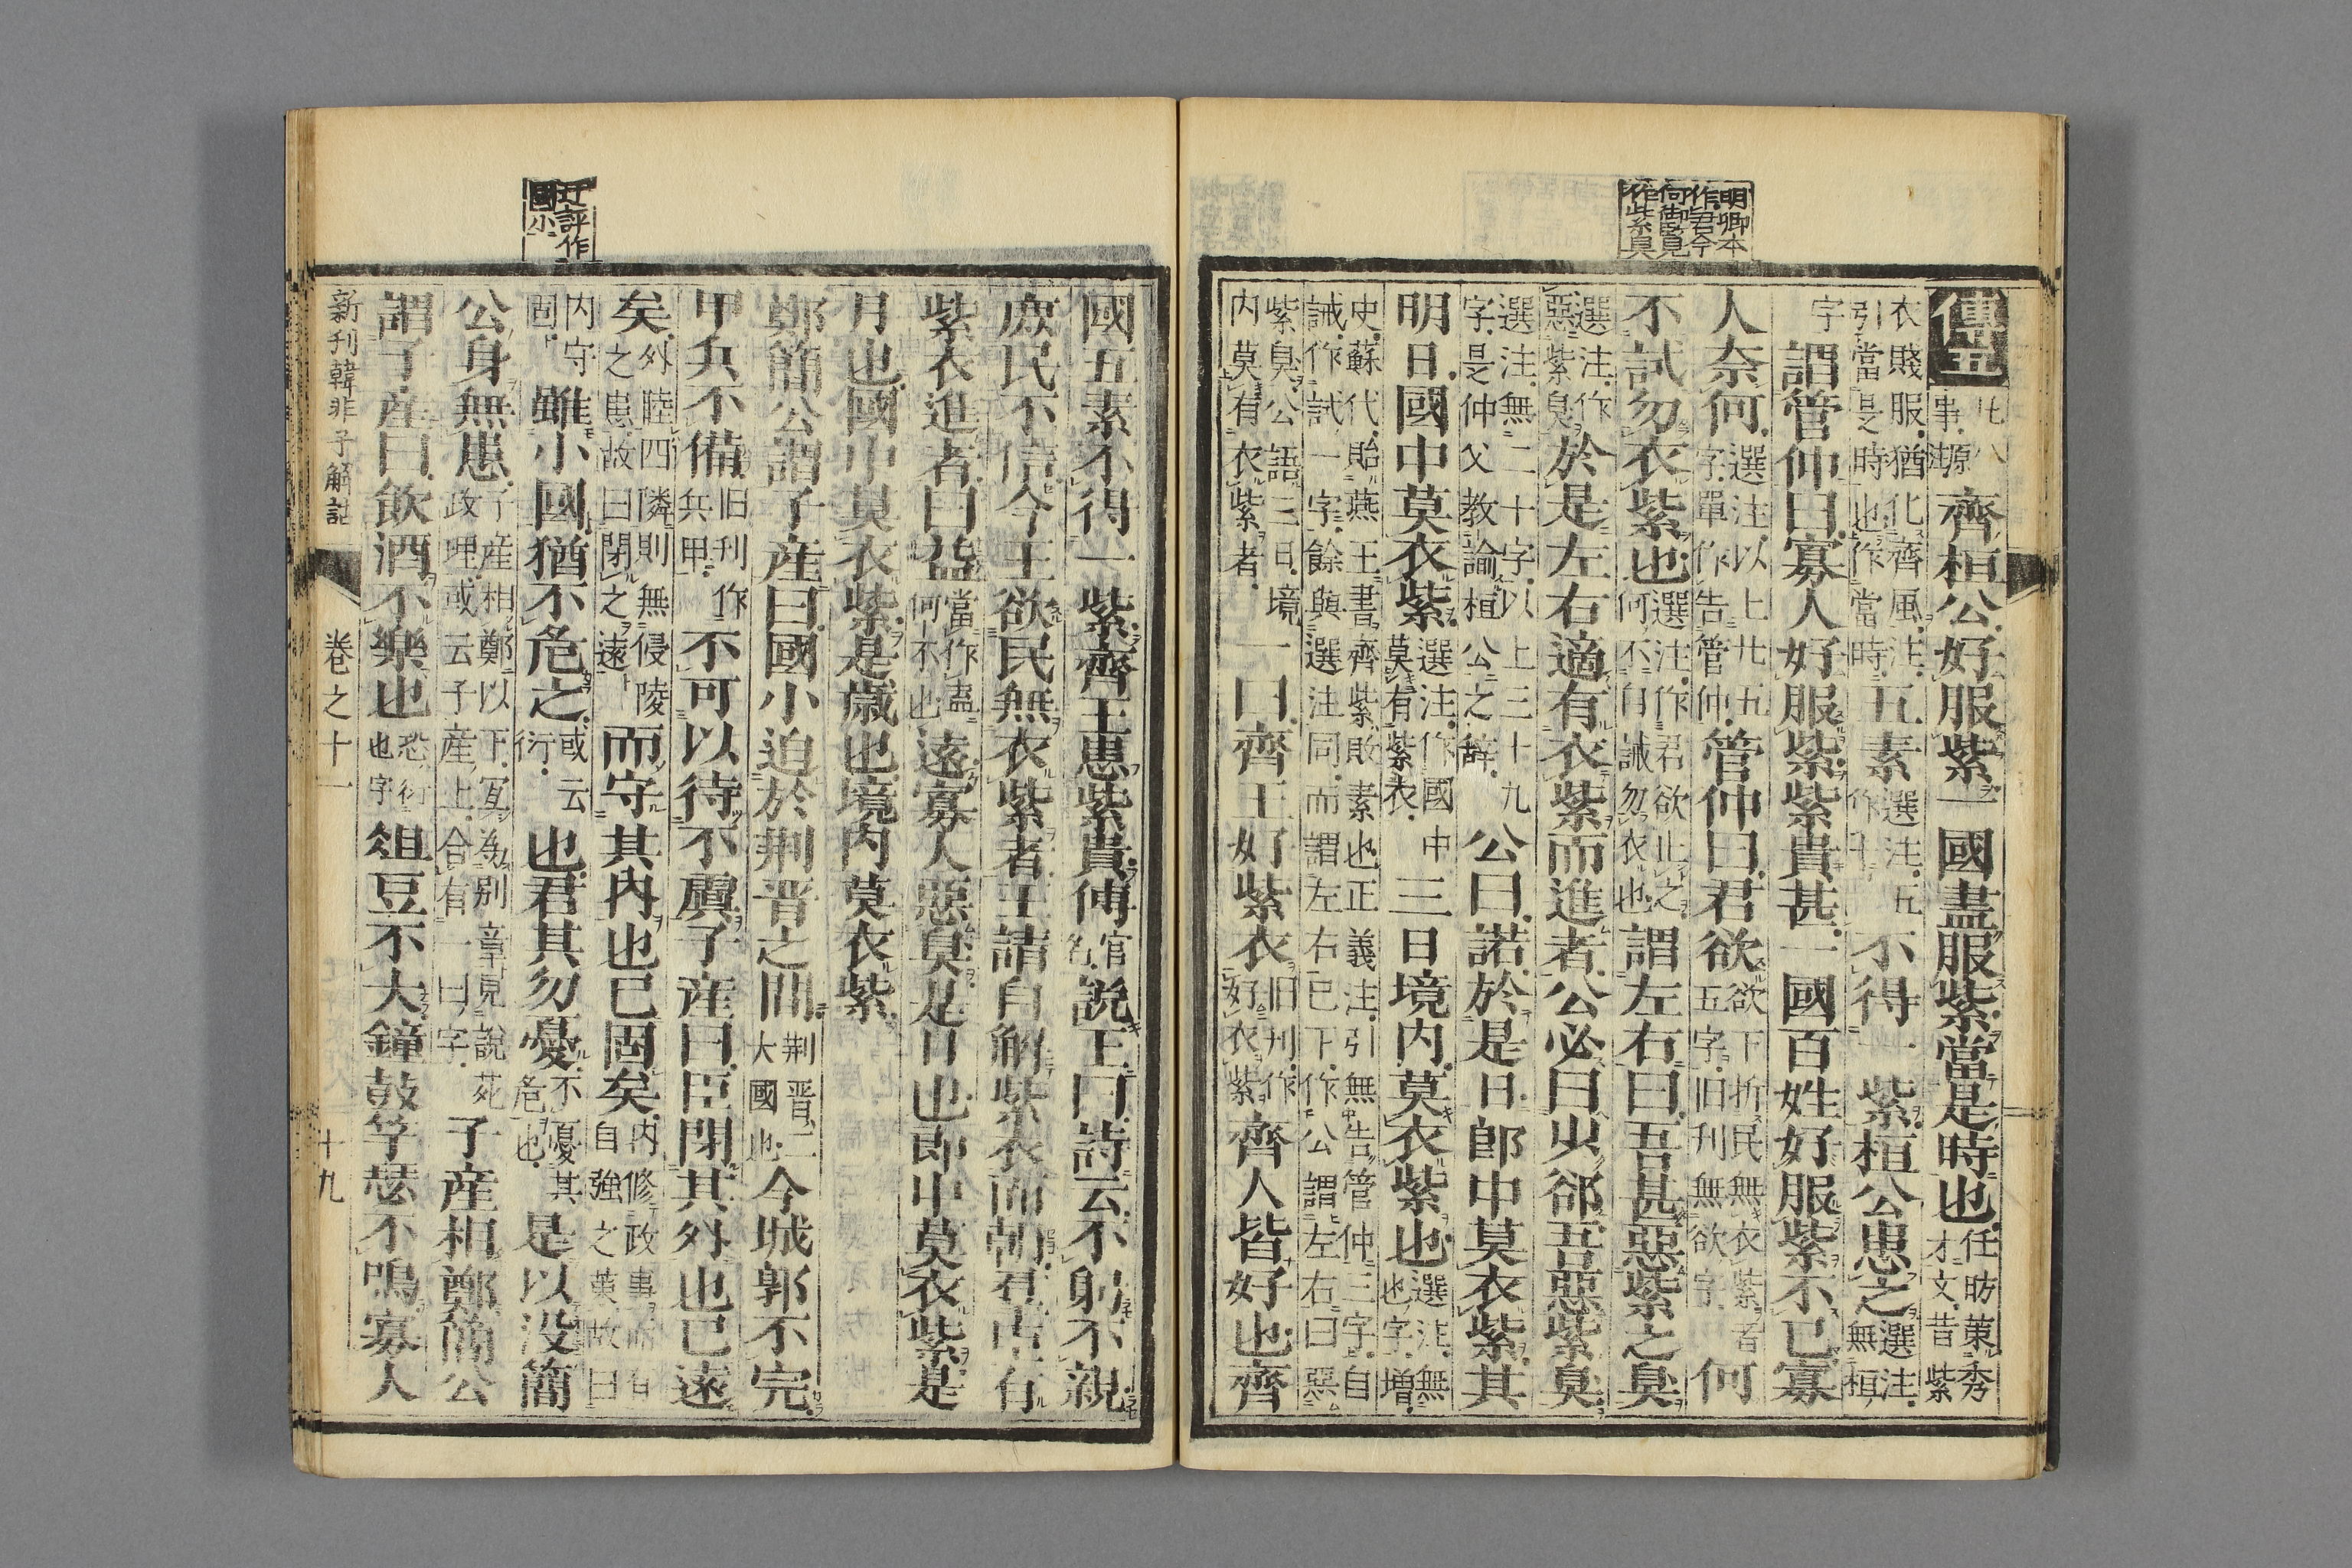 明卿本
作君今
何御覽
作紫臭
傳五 事源 齊桓公好服紫一國盡服紫當是時也任昉策秀才文昔紫
衣賤服猶化齊風注引當是時也作當時五素選注五不得一紫桓公患之選注無桓
字謂管仲曰寡人好服紫紫貴甚一國百姓好服紫不已寡
人奈何選注以上廿五字單作告管仲管仲曰君欲欲下折民無衣紫者五字旧刊無欲字何
不試勿衣紫也選注作君欲止之何不自誡勿衣也謂左右曰吾甚惡紫之臭
選注作惡紫臭於是左右適有衣紫而進者公必曰少郤吾惡紫臭
選注無二十字以上三十九字是仲父教諭桓公之辞公曰諾於是日郎中莫衣紫其
明日國中莫衣紫選注作國中莫有紫衣三日境內莫衣紫也選注無也字增
史蘇代貽燕王書齊紫敗素也正義注引無告管仲三字自誡作試一字餘與選注同而謂左右已下作公謂左右曰惡
紫臭公語三日境內莫有衣紫者一曰齊王好紫衣旧刊作好衣紫齊人皆好也齊
國五素不得一紫齊王患紫貴傅官名說王曰詩云不躬不親
庶民不信今王欲民無衣紫者王請自解紫衣而朝群臣有
紫衣進者曰益當作盍何不也遠寡人惡臭是日也郎中莫衣紫是
月也國中莫衣紫是歲也境內莫衣紫
鄭簡公謂子産曰國小迫於荆晋之間荆晋二大國也今城郭不完
甲兵不備旧刊作兵甲不可以待不虞子産曰臣閉其外也已遠
矣外陸四隣則無侵陵之患故曰閉之遠而守其內也已固矣內修政事而有自強之実故曰
內守固雖小國猶不危之或云衍也君其勿憂不憂其危也是以没簡
公身無患子産相鄭以下冝為別章見說苑政理或云子産上合有一曰字子産相鄭簡公
謂子産曰飲酒不樂也恐衍也字俎豆不大鐘鼓竽瑟不鳴寡人
迂評作
國小
新刊韓非子解詁
巻之十一
十九